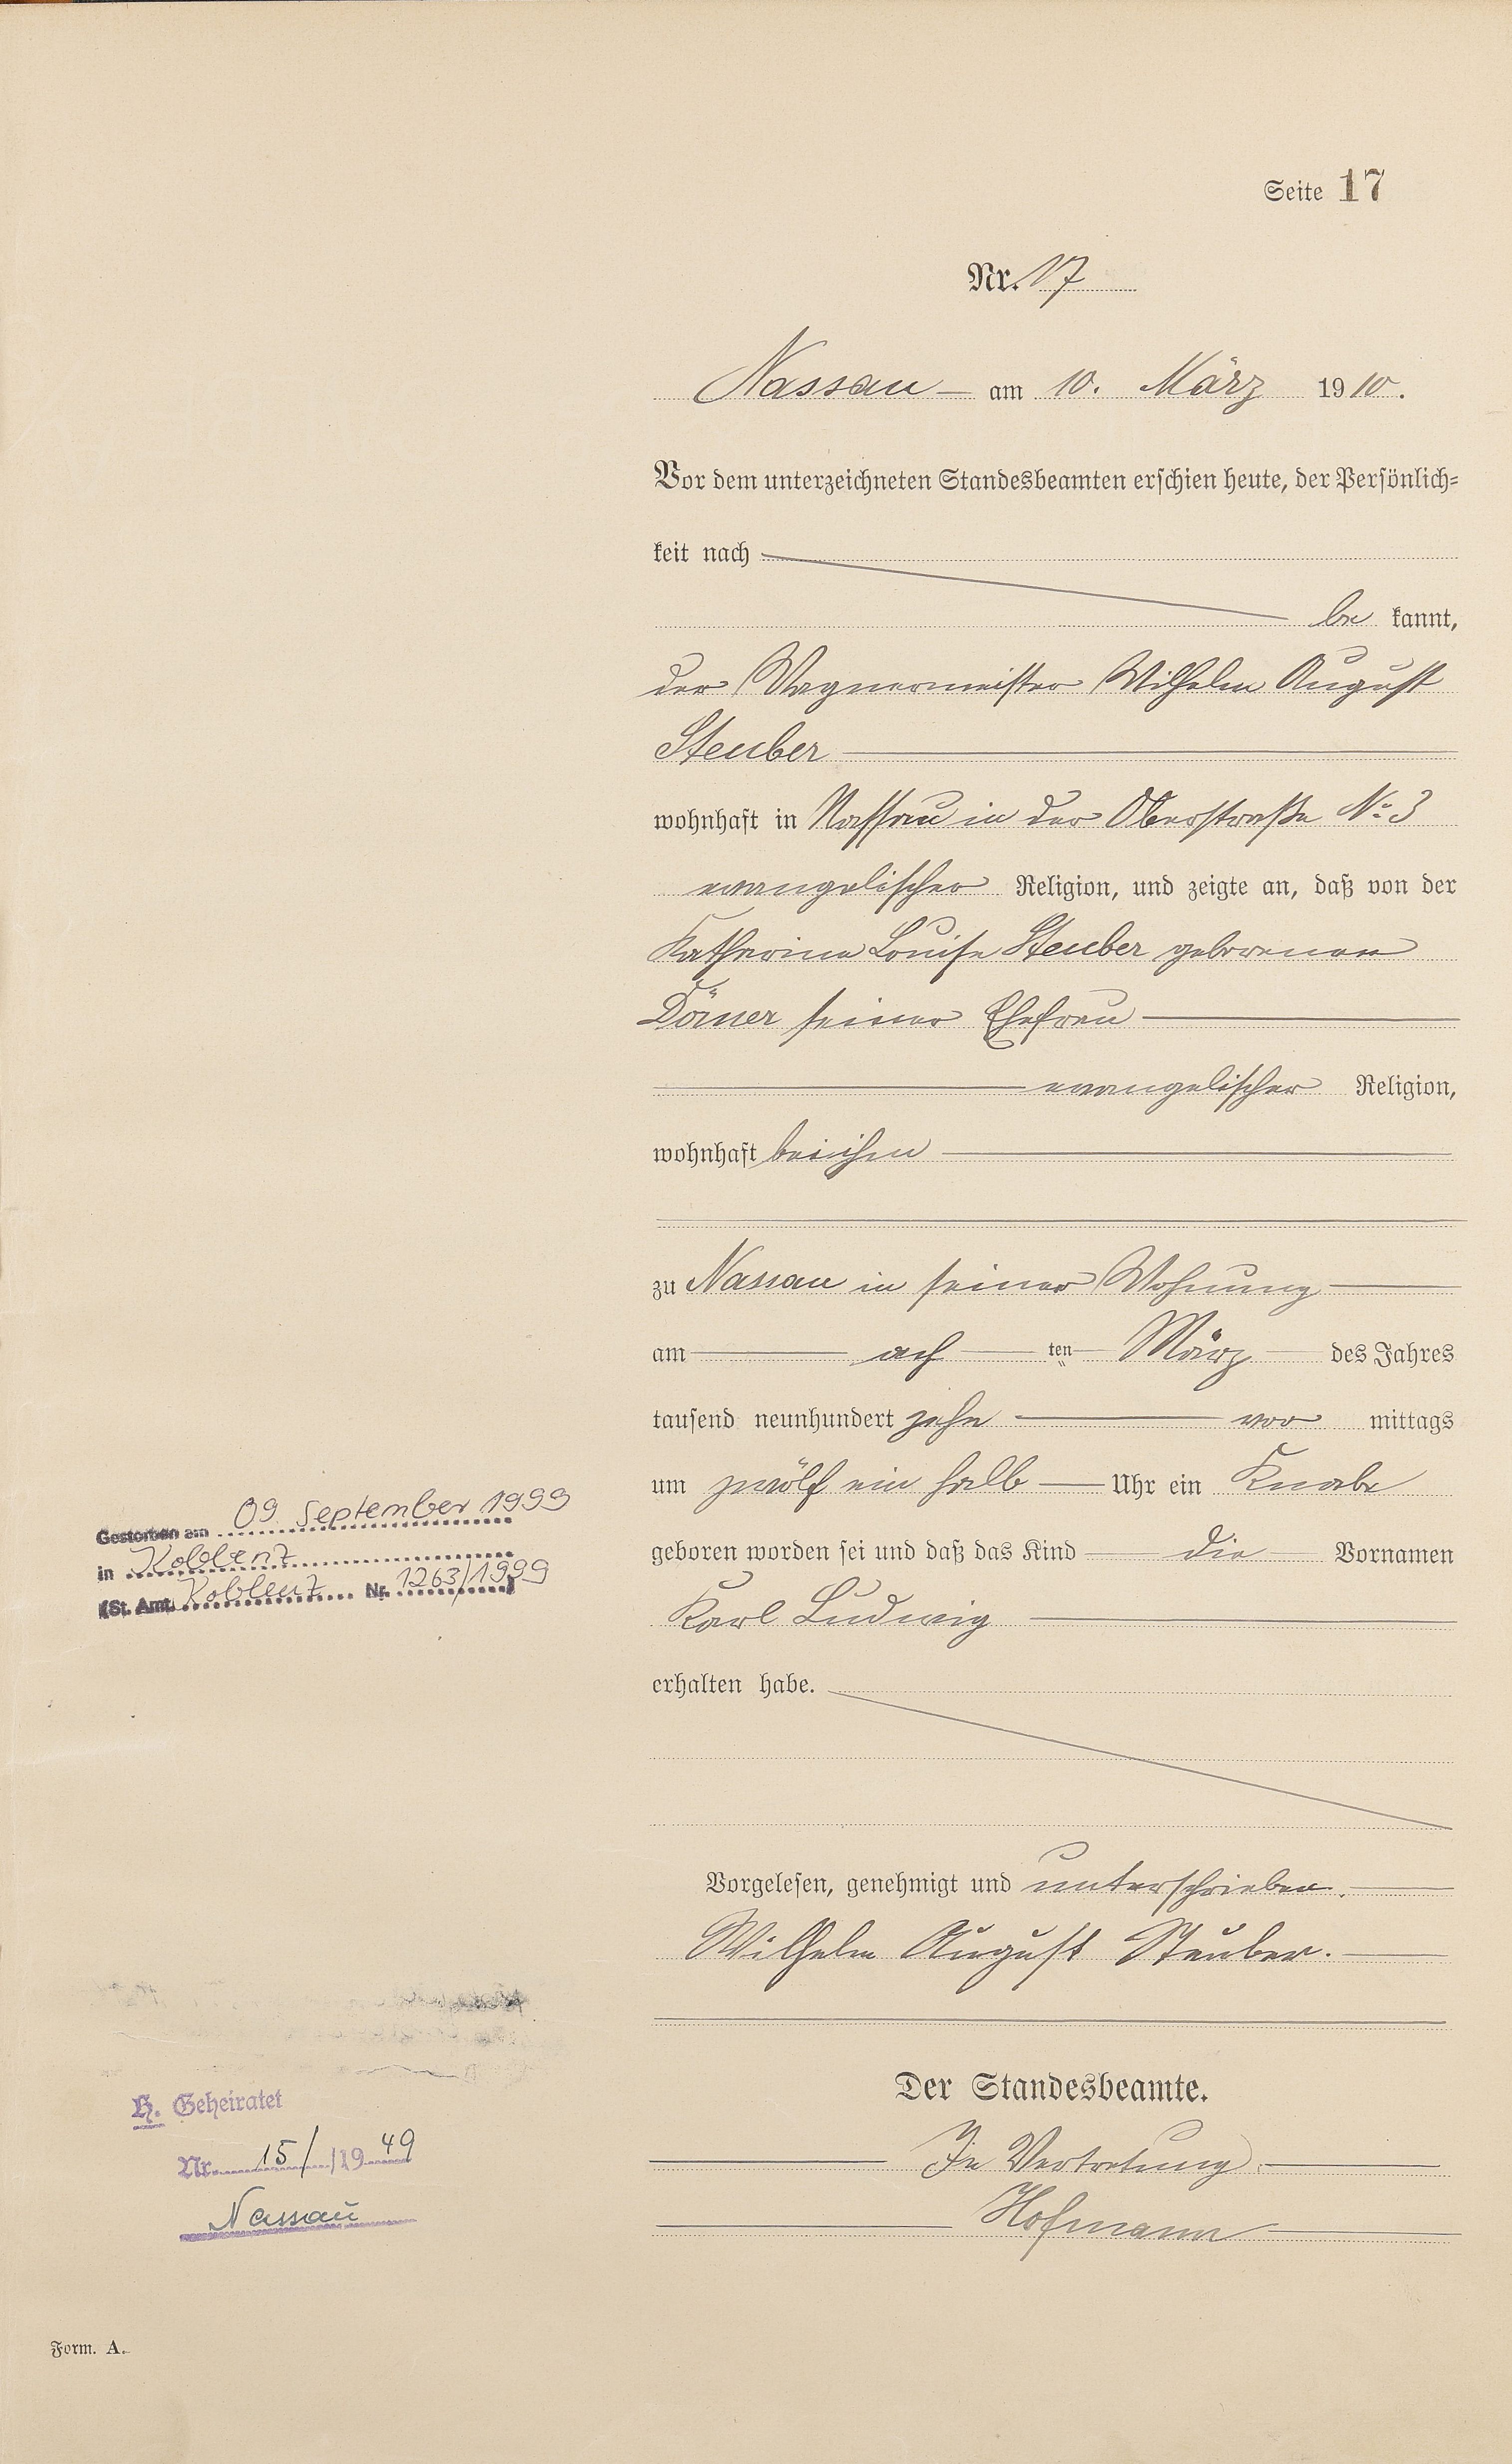 Seite 17
Nr. 17
Nassau am 10. März 1910.
Vor dem unterzeichneten Standesbeamten erschien heute, der Persönlich-
keit nach
be kannt,
der Wagnermeister Wilhelm August
Steuber
wohnhaft in Nassau in der Oberstraße No 3
evangelischer Religion, und zeigte an, daß von der
Katharina Louise Steuber geborenen
seiner Ehefrau
evangelischer Religion,
wohnhaft bei ihm
zu Nassau in seiner Wohnung
am ach ten März des Jahres
tausend neunhundert zehn vor mittags
um zwölf ein halb Uhr ein Knabe
geboren worden sei und daß das Kind die Vornamen
Karl Ludwig
erhalten habe.
Vorgelesen, genehmigt und unterschrieben.
Wilhelm August Steuber.
Der Standesbeamte.
In Vertretung.
Hofmann
Gestorben am 09. September 1999
in Koblenz
(St. Amt. Koblenz Nr. 1263/1999)
H. Geheiratet
Nr. 15/ /1949
Nassau
Form. A.